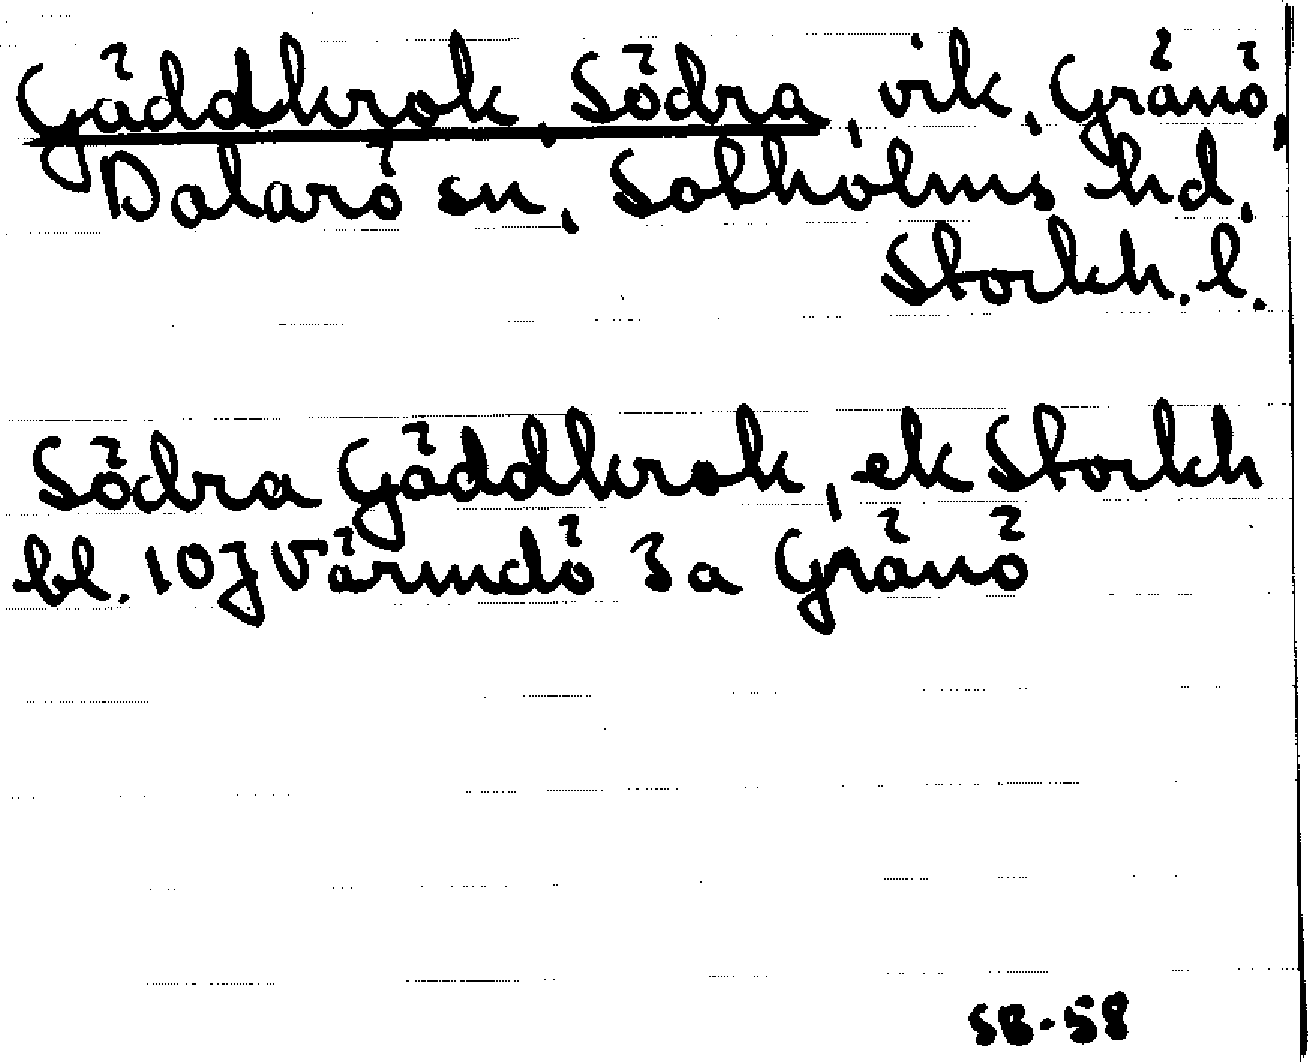 Gäddkrok, Södra, vik, Gränö,
Dalarö sn, Sotholms hd,
Stockh. l.
Södra Gäddkrok, ek Stockh
bl. 10J Värmdö 3a Gränö
SB-58